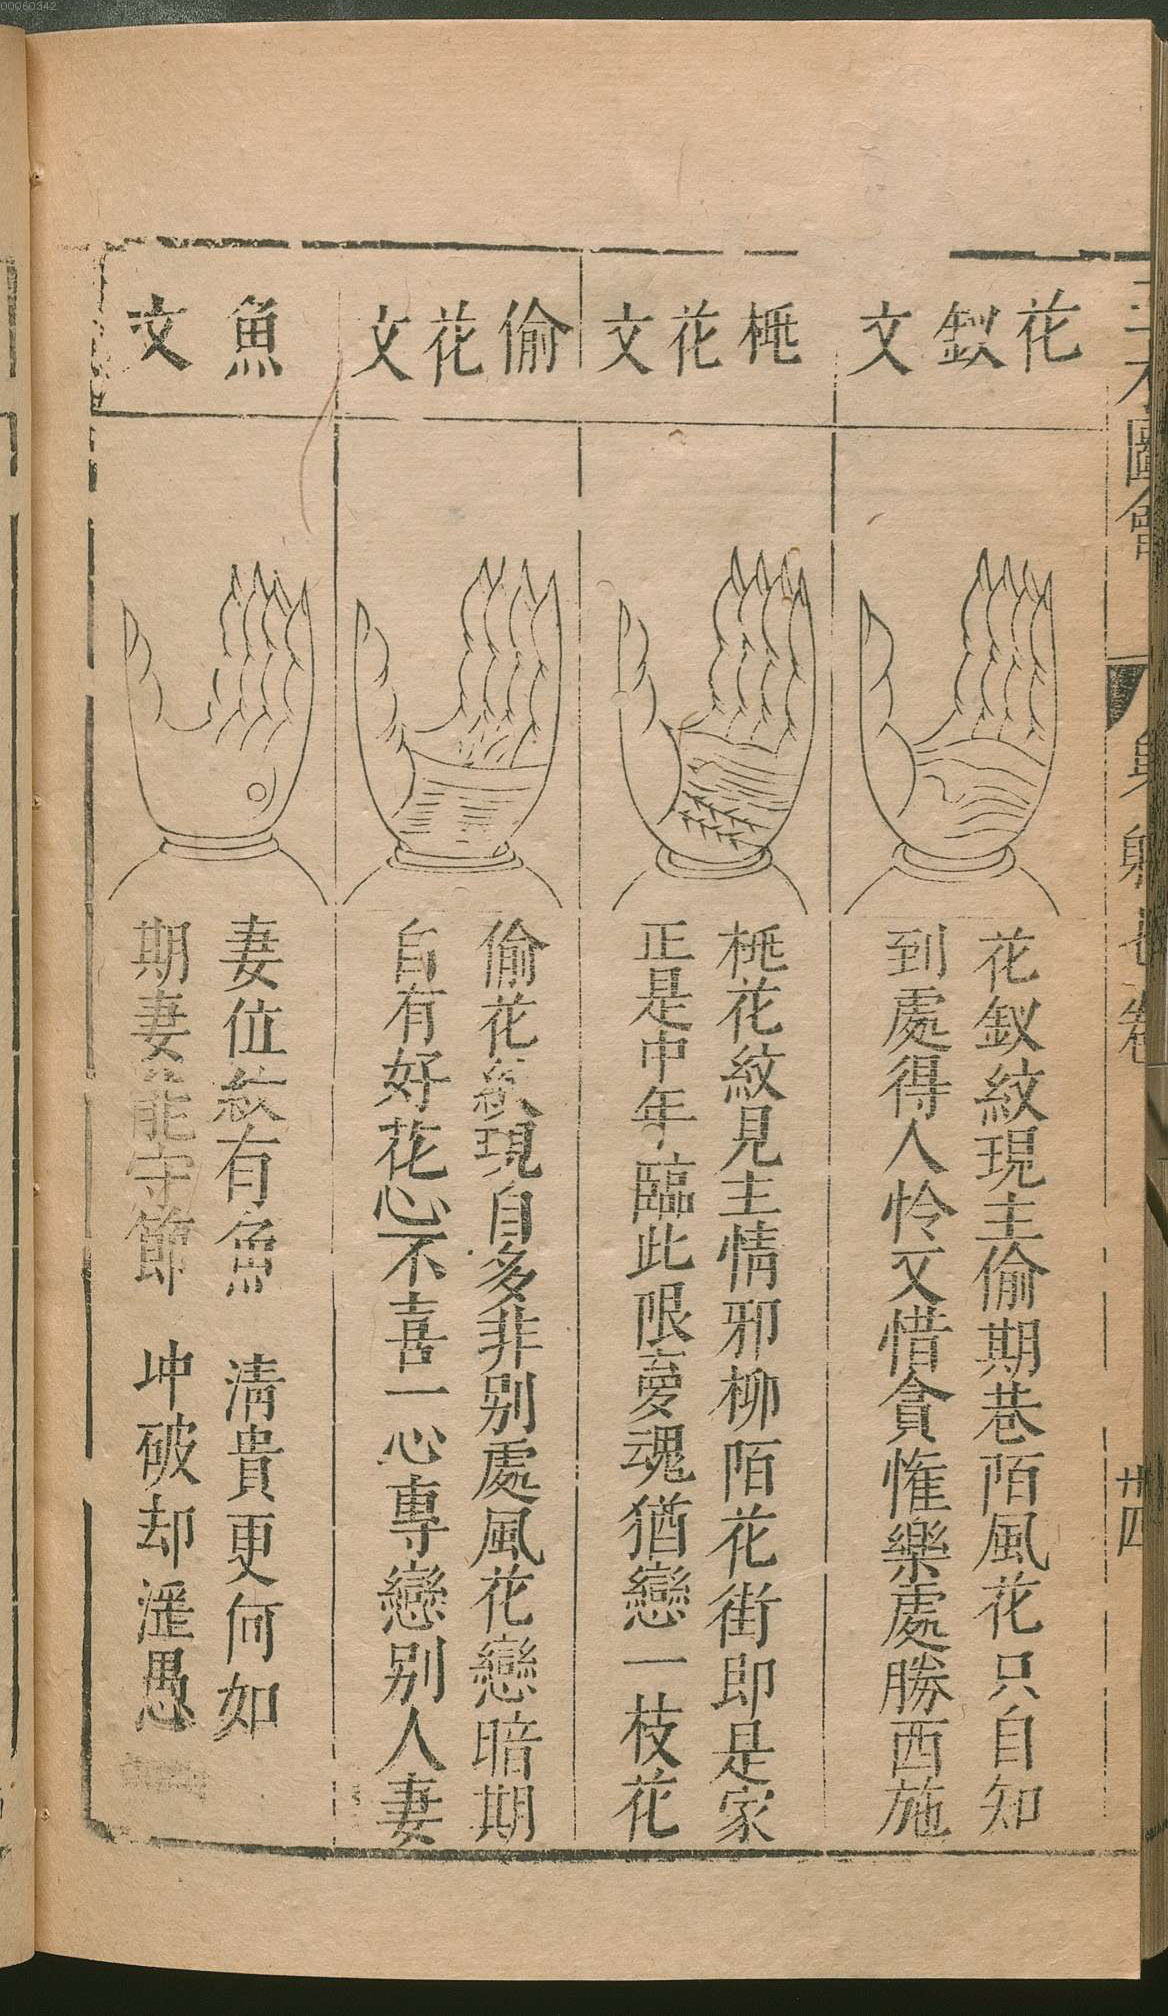 三才圖會
身體七卷
卅四
花釵文
花釵紋現主偷期巷陌風花只自知
到處得人怜又惜貪惟樂處勝西施
桃花文
桃花紋見主情邪柳陌花街即是家
正是中年臨此限夢魂猶戀一枝花
偷花文
偷花紋現自多非别處風花戀暗期
自有好花心不喜一心專戀别人妻
魚文
妻位紋有魚 清貴更何如
期妻能守節 坤破却滛愚
00060342